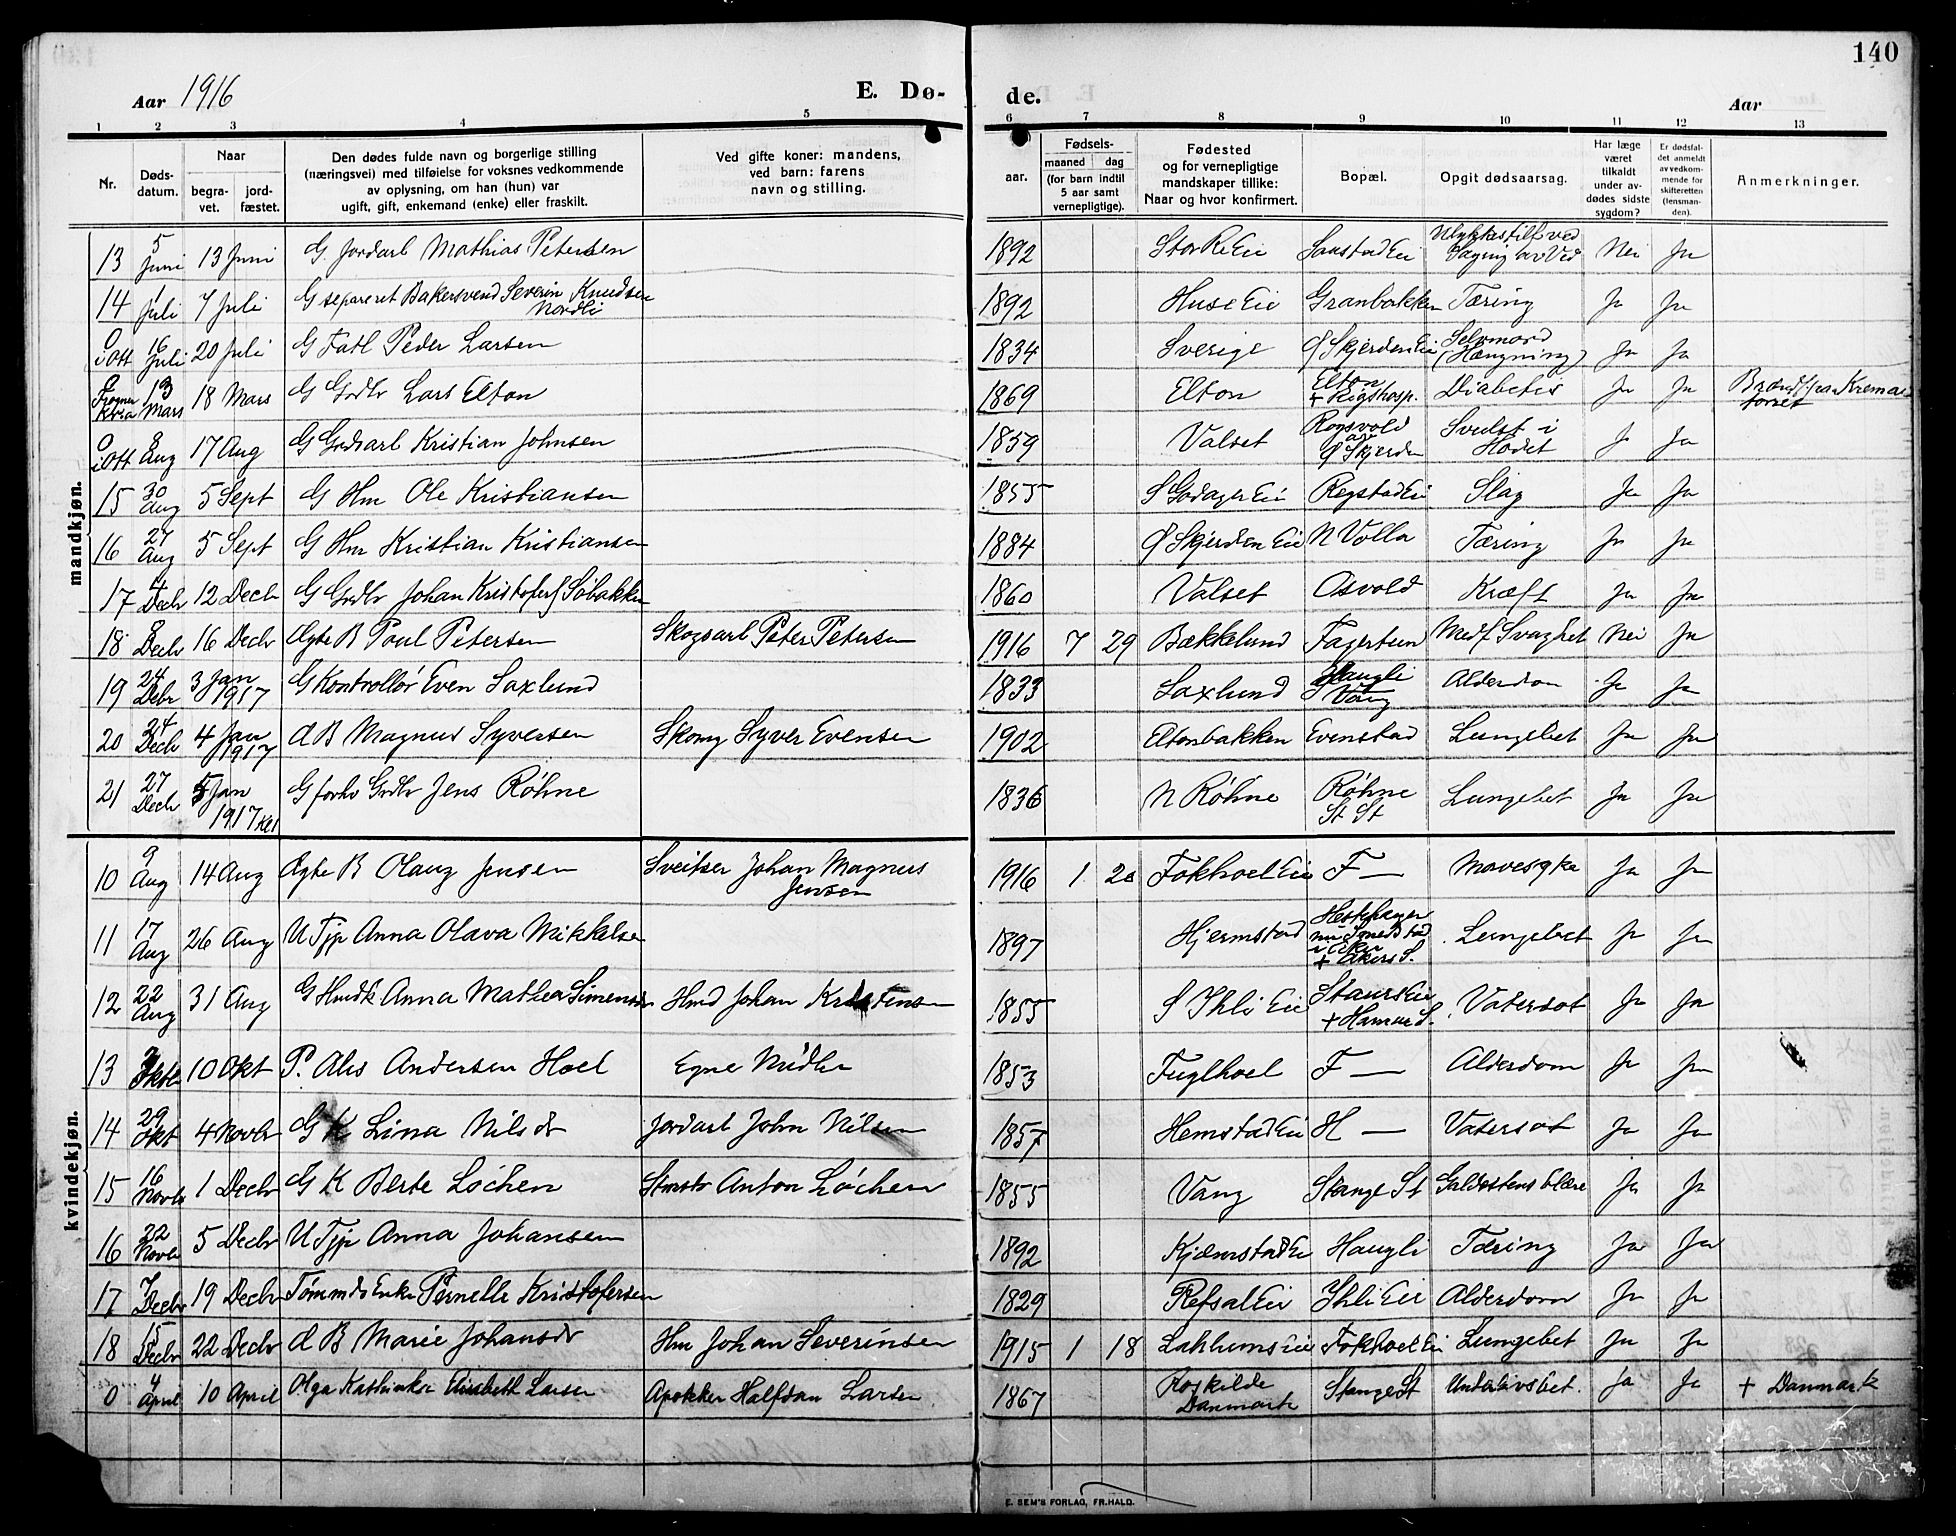 140
Aar 1916 E. Dø- de. Aar
1 2 3 4 5 6 7 8 9 10 11 12 13
Nr. Døds-datum. Naar begra-vet. jord-fæstet. Den dødes fulde navn og borgerlige stilling (næringsvei) med tilføielse for voksnes vedkommende av oplysning, om han (hun) var ugift, gift, enkemand (enke) eller fraskilt. Ved gifte koner: mandens, ved barn: farens navn og stilling. Fødsels- aar. maaned dag (for barn indtil 5 aar samt vernepligtige). Fødested og for vernepligtige mandskaper tillike: Naar og hvor konfirmert. Bopæl. Opgit dødsaarsag. Har læge været tilkaldt under av-dødes sidste sygdom? Er dødsfal-det anmeldt av vedkom-mende for skifteretten (lensman-den). Anmerkninger.
mandkjøn.
13 5 Juni 13 Juni G. Jordarb Mathias Petersen 1892 Saastad Eie Ulykkestilf ved Saging av Ved Nei Ja
14 1 Juli 7 Juli G separeret Bakersvend Severin Knudsen Nordli 1892 Huse Eie Granbakken Tæring Ja Ja
0 i Ott 16 Juli 20 Juli G Fatl Peder Larsen 1834 Sverige Ø Skjerden Eie Selvmord (Hængning) Ja Ja
0 Frogner Kr.a 13 Mars 18 Mars G Grdbr Lars Elton 1869 Elton Elton + Rigshosp. Diabetis Ja Ja Brændt paa Krema-toriet
0 i Ott 8 Aug 17 Aug G Grdsarb Kristian Johnsen 1859 Valset Rogsvold av Ø Skjerden Svulst i Hodet Ja Ja
15 30 Aug 5 Sept G Hm Ole Kristiansen 1855 S Godager Eie Rogstad Eie Slag Ja Ja
16 27 Aug 5 Sept G Hm Kristian Kristiansen 1884 Ø Skjerden Eie N Volla Tæring Ja Ja
17 4 Decbr 12 Decbr G Grdbr Johan Kristofers Sobakken 1860 Valset Osvold Kræft Ja Ja
18 8 Decbr 16 Decbr Ægte B Poul Petersen Skogsarb Peter Petersen 1916 7 29 Bækkelund Fagertun Medf Svaghet Nei Ja
19 24 Debr 3 Jan 1917 G Kontrollør Even Saxlund 1833 Saxlund Haugli Vang Alderdom Ja Ja
20 24 Decbr 4 Jan 1917 d B Magnus Syversen Skomg Syver Evensen 1902 Eltonbakken Evenstad Lungebet Ja Ja
21 27 Decbr 5 Jan 1917 G forhv Grdbr Jens Røhne 1836 N Røhne Røhne St St Lungebet Ja Ja
kvindekjøn.
10 9 Aug 14 Aug Ægte B Olaug Jensen Sveitser Johan Magnus Jensen 1916 1 20 Fokhoel Eie F — Mavesyke Ja Ja
11 17 Aug 26 Aug U Tjp Anna Olava Mikkelsen 1897 Hjermstad Lungebet Ja Ja
12 22 Aug 31 Aug G Hmdk Anna Mathea Simensdr Hmd Johan Kristensen 1855 S Ihli Eie Staurs Eie + Hamar S. Vatersot Ja Ja
13 Oktb 10 Okt P. Alis Andersen Hoel Egne Midler 1853 Fuglhoel F — Alderdom Ja Ja
14 29 Okt 4 Novbr G K Lina Nilsdr Jordarb John Nilsen 1857 Hemstad Eie H — Vatersot Ja Ja
15 16 Novbr 1 Decbr G K Berte Løchen Anton Løchen 1855 Vang Stange St Galdestensblære Ja Ja
16 22 Novbr 5 Decbr U Tjp Anna Johansen 1892 Kjæmstad Eie Haugli Tæring Ja Ja
17 7 Decbr 19 Decbr Tømmds Enke Pernelle Kristofersen 1829 Refsal Eie Ihli Eie Alderdom Ja Ja
18 15 Decbr 22 Decbr d B Marie Johansdr Hm Johan Severinsen 1915 1 18 Lakhums Eie Fokhoel Eie Lungebet Ja Ja
0 4 April 10 April Olga Kathinka Elisabeth Larsen Apotheker Halfdan Larsen 1867 Roskilde Danmark Stange St Underlivsbet. Ja Ja + Danmark
E. SEM'S FORLAG, FR.HALD.